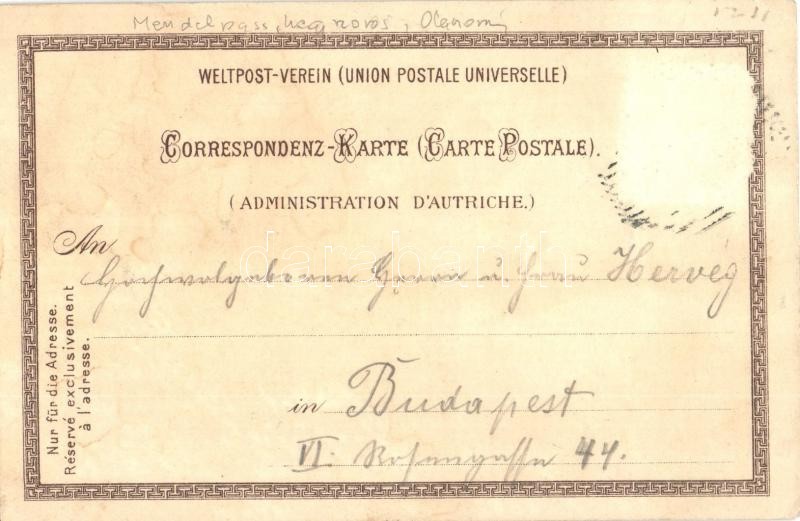 Mendelpass,
WELTPOST-VEREIN (UNION POSTALE UNIVERSELLE)
CORRESPONDENZ-KARTE (CARTE POSTALE).
(ADMINISTRATION D'AUTRICHE.)
An
Hochwolgeboren Herrn u. Frau Hervég
in Budapest
VI. Rosengasse 44.
Nur für die Adresse.
Réservé exclusivement
à l'adresse.
darabanth.com